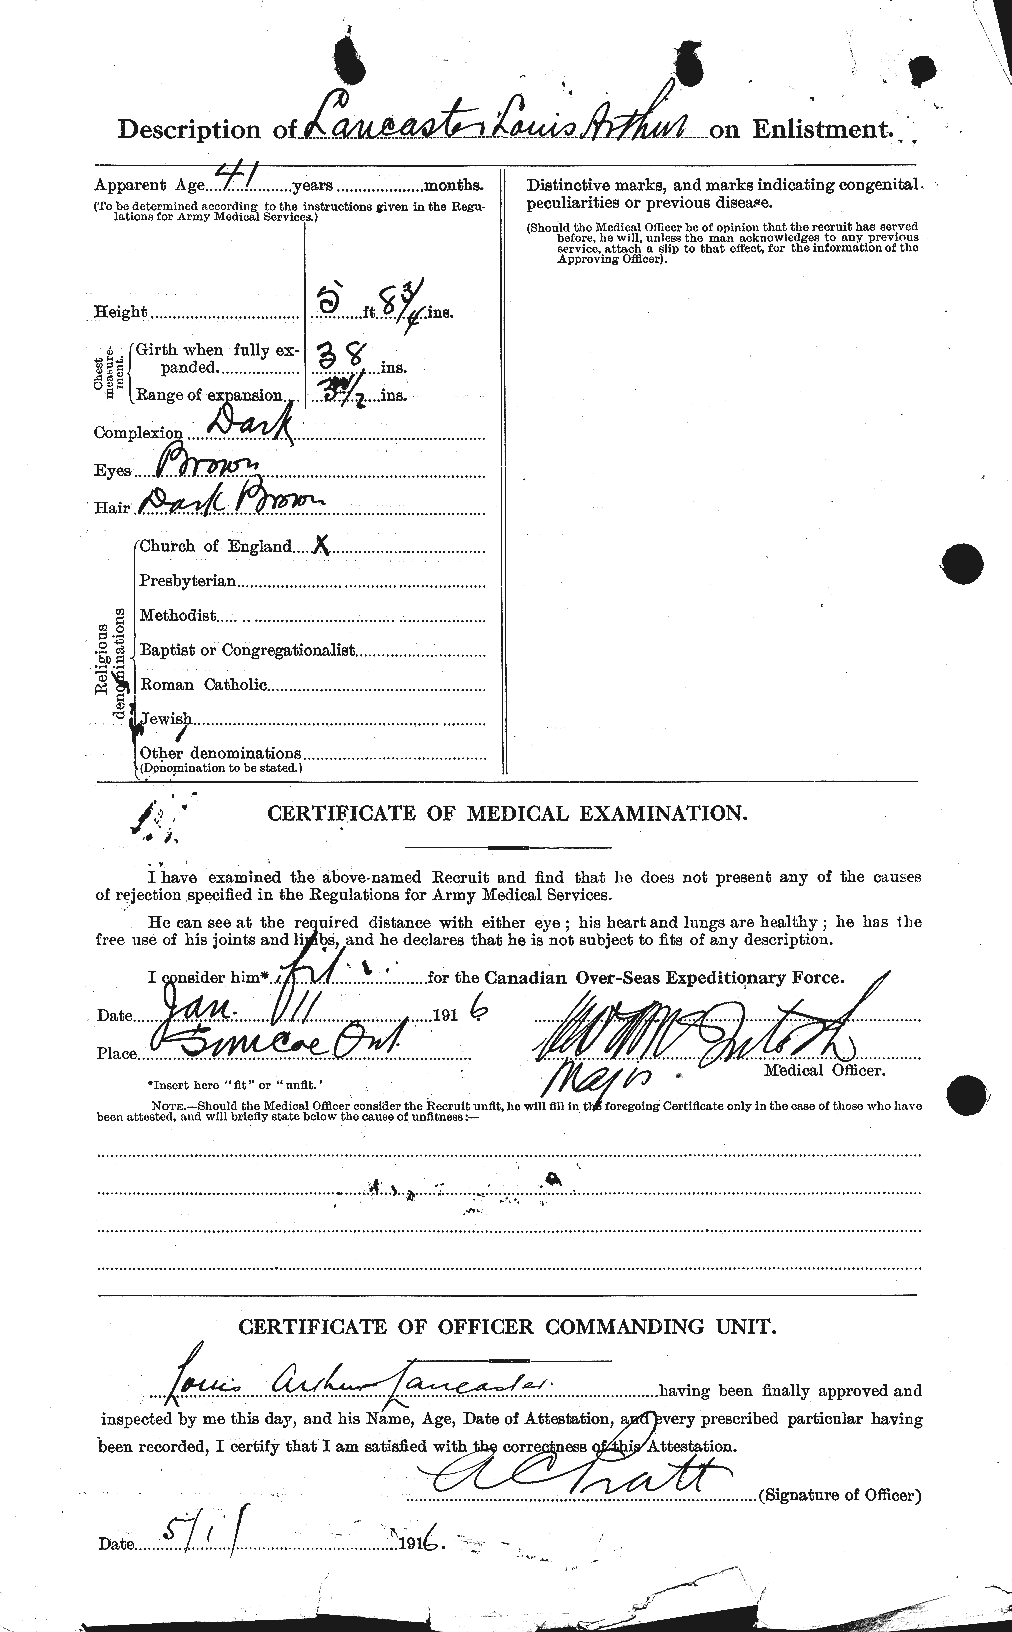 Description of Lancaster Louis Arthur on Enlistment.
Apparent Age 41 years months.
(To be determined according to the instructions given in the Regu-
lations for Army Medical Services.)
Height 5 ft. 8 3/4 ins.
Chest measure-
ment.
Girth when fully ex-
panded 38 ins.
Range of expansion 1/2 ins.
Complexion Dark
Eyes Brown
Hair Dark Brown
Religious
denominations
Church of England X
Presbyterian
Methodist
Baptist or Congregationalist
Roman Catholic
Jewish
Other denominations
(Denomination to be stated.)
Distinctive marks, and marks indicating congenital
peculiarities or previous disease.
(Should the Medical Officer be of opinion that the recruit has served
before, he will, unless the man acknowledges to any previous
service, attach a slip to that effect, for the information of the
Approving Officer).
CERTIFICATE OF MEDICAL EXAMINATION.
I have examined the above-named Recruit and find that he does not present any of the causes
of rejection specified in the Regulations for Army Medical Services.
He can see at the required distance with either eye; his heart and lungs are healthy; he has the
free use of his joints and limbs, and he declares that he is not subject to fits of any description.
I consider him* fit for the Canadian Over-Seas Expeditionary Force.
Date Jan. 11 1916
Place Simcoe Ont.
McIntosh
Major.
Medical Officer.
*Insert here "fit" or "unfit.'
NOTE.—Should the Medical Officer consider the Recruit unfit, he will fill in the foregoing Certificate only in the case of those who have
been attested, and will briefly state below the cause of unfitness:—
CERTIFICATE OF OFFICER COMMANDING UNIT.
Louis Arthur Lancaster having been finally approved and
inspected by me this day, and his Name, Age, Date of Attestation, and every prescribed particular having
been recorded, I certify that I am satisfied with the correctness of this Attestation.
A C Pratt
(Signature of Officer)
Date 5/1/ 1916.